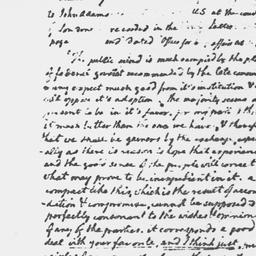 to John Adams U.S. at the cour
London recorded in the Letter
page and dated office for a affairs
The public mind is much occupied by the pl
of federal governt recommended by the late conven
many expect much good from its institution &
will oppose it's adoption. the majority seems a
present to be in it's favor. for my part I th
it much better than the one we have, & though
that we shall be gainers by the exchange, espe
ally as there is reason to hope that experience
and the good sense of the people will correct
what may prove to be inexpedient in it. a
compact like this, which is the result of accom
dation & compromise, cannot be supposed
perfectly consonant to the wishes & opinion
of any of the parties. it corresponds a good
deal with your favorite, and I think just